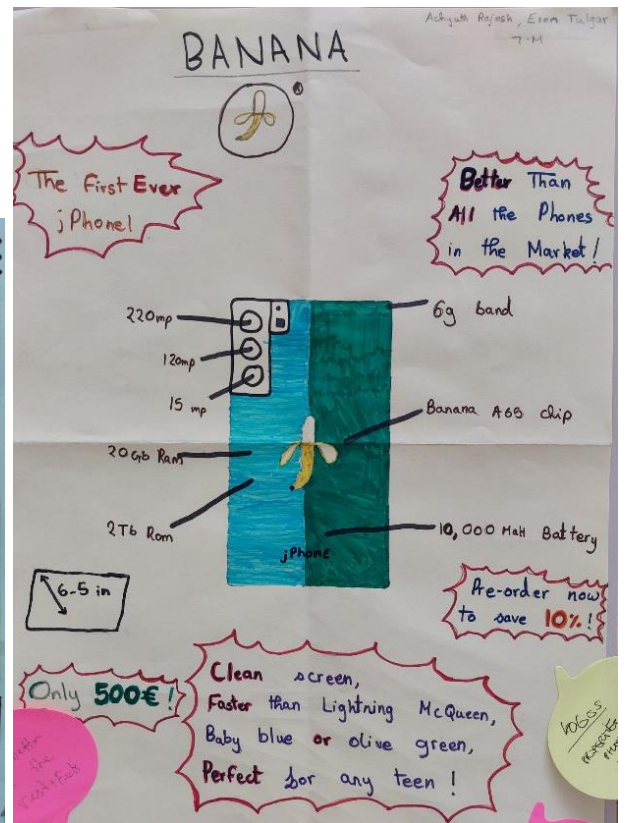 Achyuth Rajesh, Eren Tulgar
7-M
BANANA
®
The First Ever
jPhone!
Better Than
All the Phones
in the Market!
220mp
120mp
15 mp
6g band
Banana A69 chip
20Gb Ram
2Tb Rom
10,000 MaH Battery
jPhone
6-5 in
Pre-order now
to save 10%!
Only 500€!
Clean screen,
Faster than Lightning McQueen,
Baby blue or olive green,
Perfect for any teen!
the